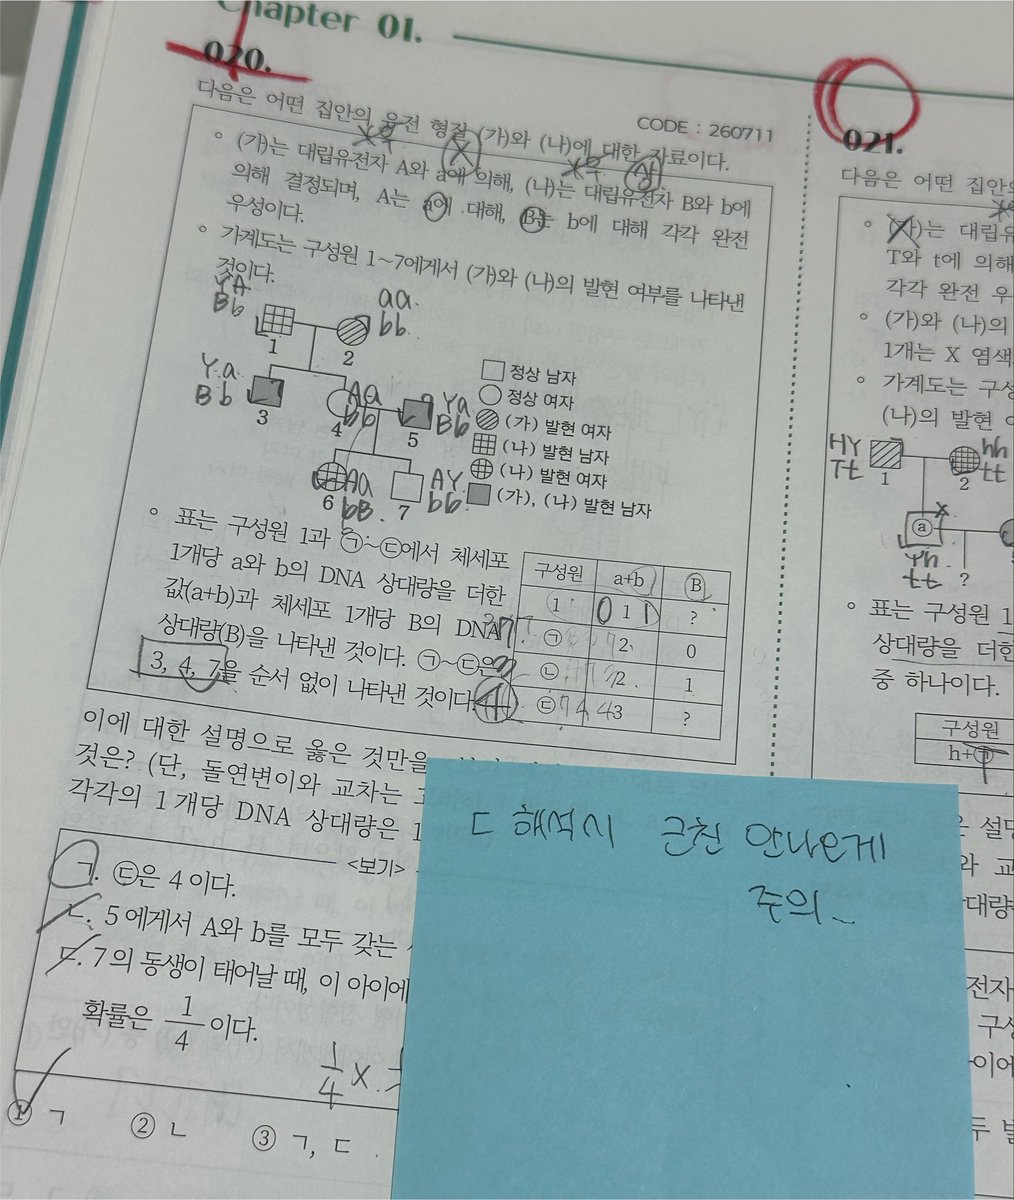 Chapter 01.
020.
CODE : 260711
다음은 어떤 집안의 유전 형질 (가)와 (나)에 대한 자료이다.
(가)는 대립유전자 A와 a에 의해, (나)는 대립유전자 B와 b에
의해 결정되며, A는 a에 대해, B는 b에 대해 각각 완전
우성이다.
가계도는 구성원 1~7에게서 (가)와 (나)의 발현 여부를 나타낸
것이다.
YA
Bb
aa
bb
1
2
Ya
Bb
Aa
bb
Ya
Bb
3
4
5
Aa
bB
AY
bb
6
7
정상 남자
정상 여자
(가) 발현 여자
(나) 발현 남자
(나) 발현 여자
(가), (나) 발현 남자
표는 구성원 1과 ㉠~㉢에서 체세포
1개당 a와 b의 DNA 상대량을 더한
값(a+b)과 체세포 1개당 B의 DNA
상대량(B)을 나타낸 것이다. ㉠~㉢은
3, 4, 7을 순서 없이 나타낸 것이다.
구성원 a+b B
1 0 1 1 ?
㉠ 2 0
㉡ 2 1
㉢ 3 ?
이에 대한 설명으로 옳은 것만을
것은? (단, 돌연변이와 교차는
각각의 1개당 DNA 상대량은 1
<보기>
ㄱ. ㉢은 4이다.
ㄴ. 5에게서 A와 b를 모두 갖는
ㄷ. 7의 동생이 태어날 때, 이 아이에
확률은 1/4이다.
1/4 x
① ㄱ
② ㄴ
③ ㄱ, ㄷ
ㄷ 해석시 근친 안나오게
주의..
021.
다음은 어떤 집안
(가)는 대립유
T와 t에 의해
각각 완전 우
(가)와 (나)의
1개는 X 염색
가계도는 구성
(나)의 발현 여
HY
Tt
hh
tt
1
2
ⓐ
Yh
tt
?
표는 구성원 1
상대량을 더한
중 하나이다.
구성원
h+